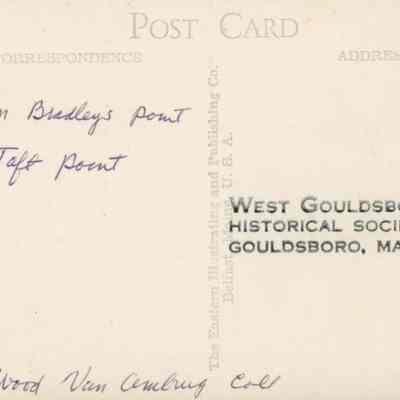 POST CARD
CORRESPONDENCE
ADDRES
Bradley's point
Taft point
The Eastern Illustrating and Publishing Co.
Belfast, Maine, U. S. A.
WEST GOULDSBO
HISTORICAL SOCIE
GOULDSBORO, MA
Wood Van Ambrug Coll